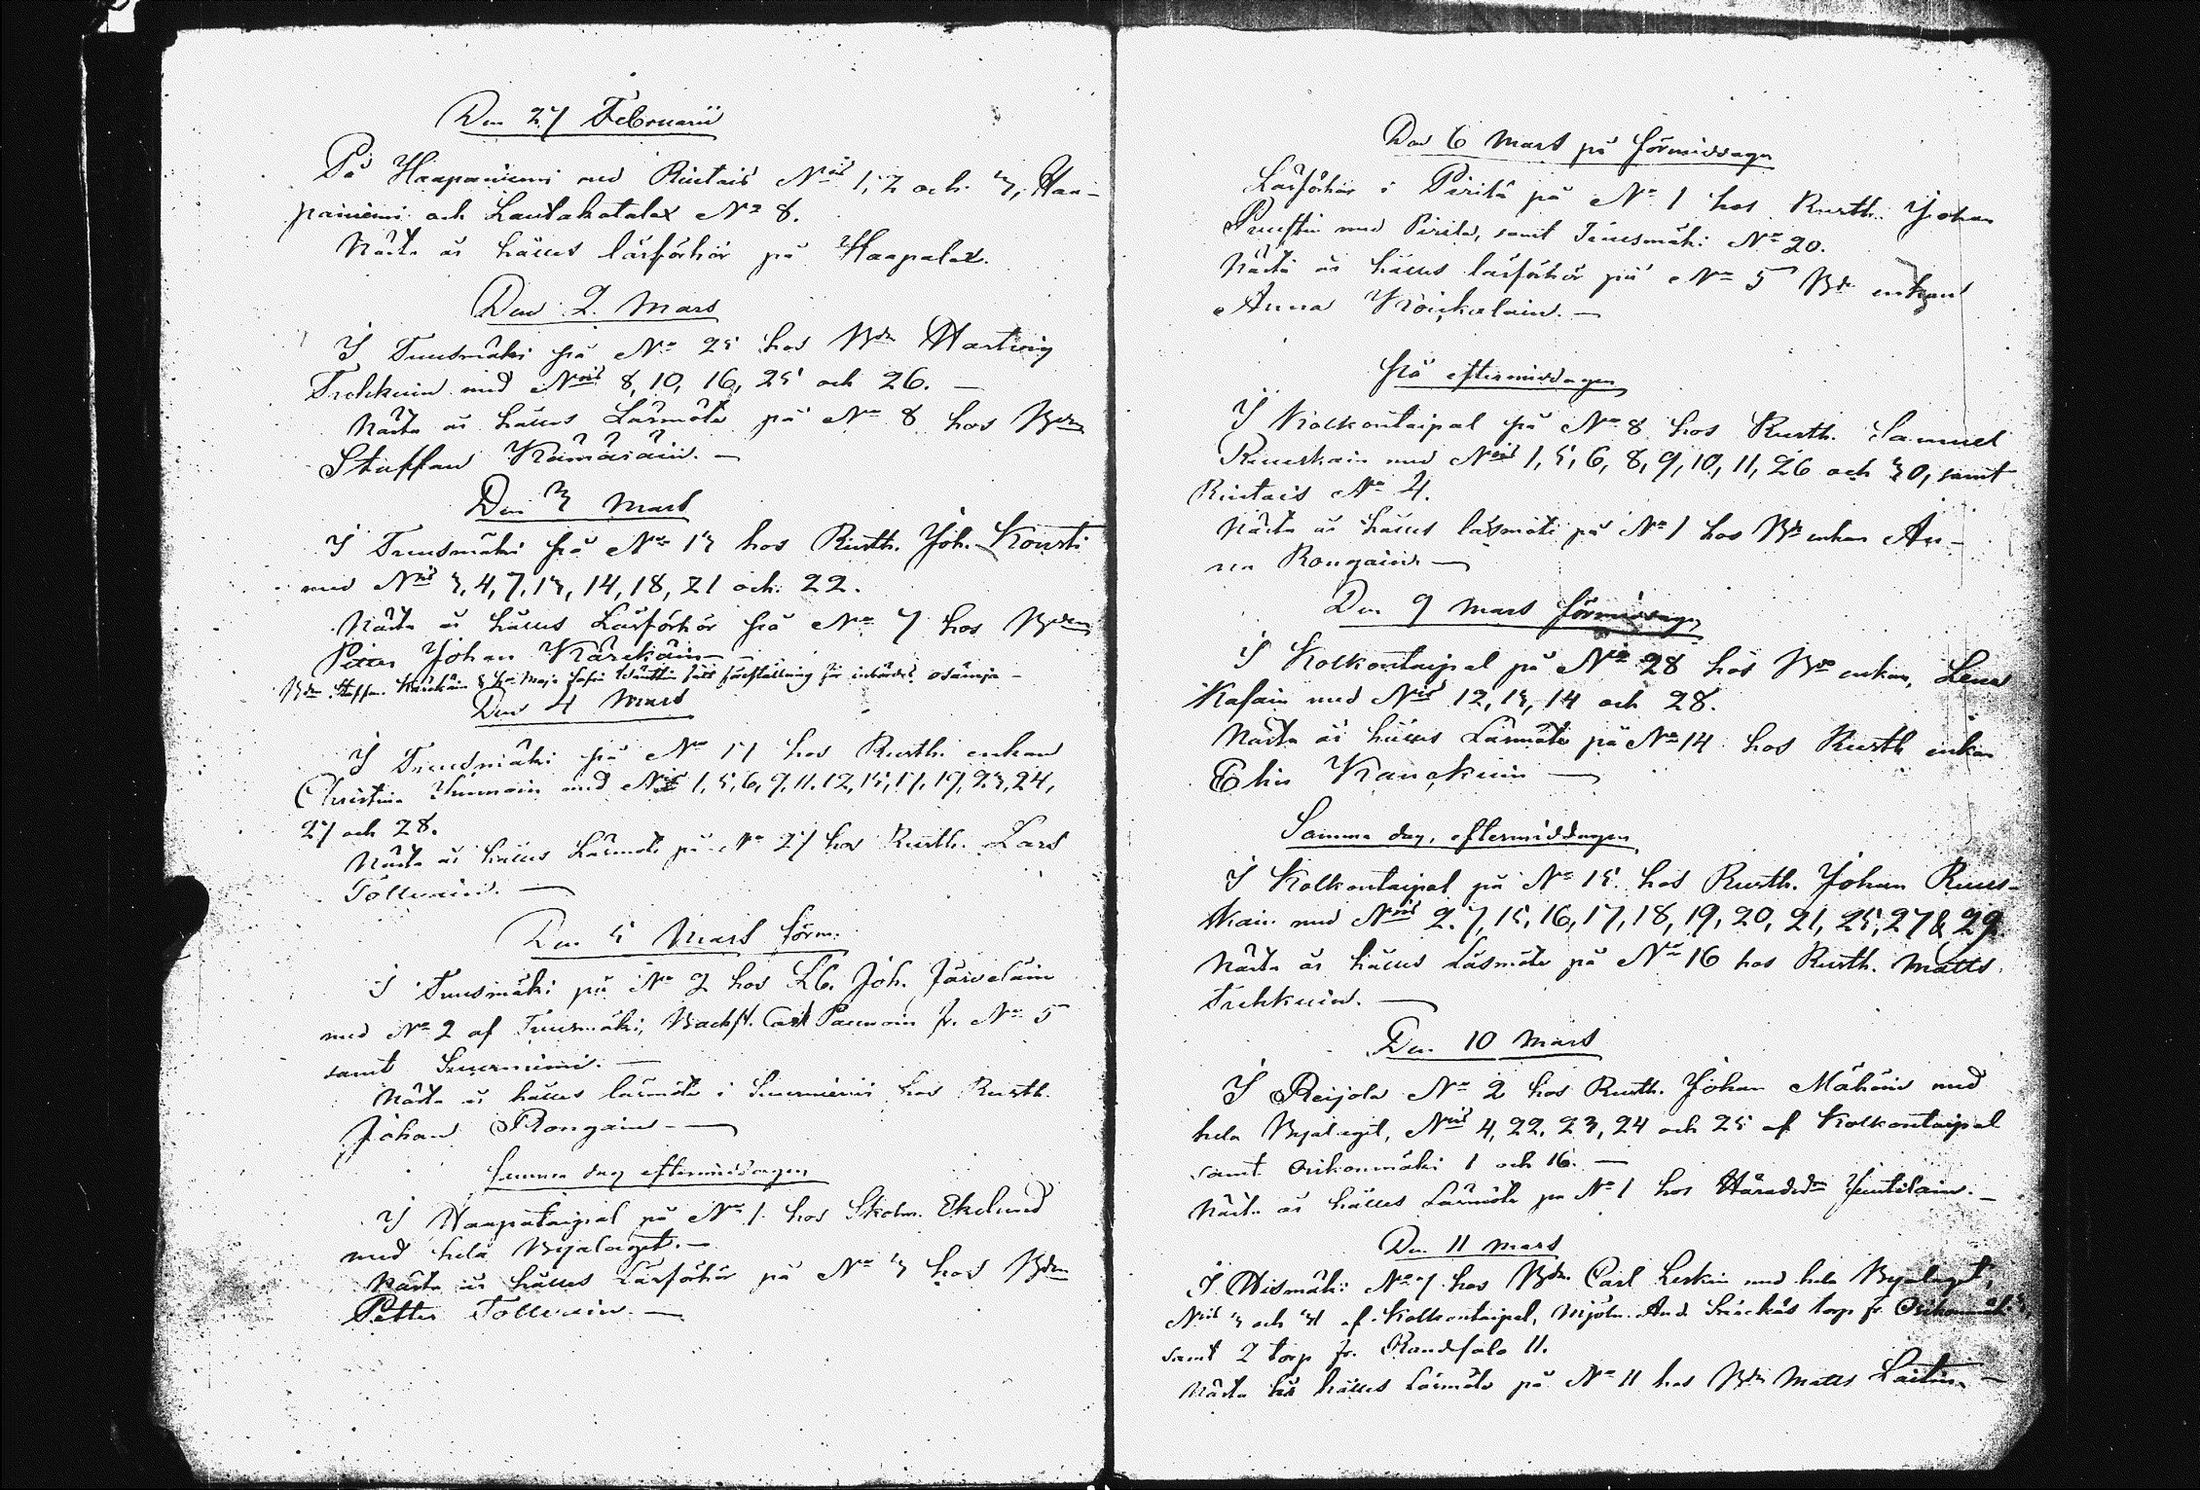 Den 27 Februarii
På Haapaniemi med Rintais N:ris 1, 2 och 3, Haa-
painiemi och Lautakotalax N:o 8.
Nästa år hålles läsförhör på Haapalax.
Den 2. Mars
I Tuusmäki på N:o 25 hos Bdn Hartwig
Tschkuin med N:ris 8, 10, 16, 25 och 26. —
Nästa år hålles Läsmöte på N:o 8 hos Bdn
Staffan Kämäräin. —
Den 3 Mars
I Tuusmäki på N:o 13 hos Rusth. Joh. Kousti
med N:ris 3, 4, 7, 13, 14, 18, 21 och 22.
Nästa år hålles Läsförhör på N:o 7 hos Bdn
Petter Johan Kärckäin —
Bdn Staffan Kärckäin & h. Maja Sofia fått föreställning för inbördes osämja —
Den 4 Mars
I Tuusmäki på N:o 17 hos Rusth. enkan
Christina Immoin med N:ris 1, 5, 6, 9, 11, 12, 15, 17, 19, 23, 24,
27 och 28.
Nästa år hålles Läsmöte på N:o 27 hos Rusth. Lars
Tolluain. —
Den 5 Mars förm.
I Tuusmäki på N:o 2 hos Lb. Joh. Järveläin
med N:o 2 af Tuusmäki, Backst. Carl Paunoin fr. N:o 5
samt Suurniemi. —
Nästa år hålles läsmöte i Suurniemi hos Rusth.
Johan Rongain —
Samma dag eftermiddagen
I Haapataipal på N:o 1. hos Skolm. Ekelund
med hela Byalaget. —
Nästa år hålles Läsförhör på N:o 3 hos Bdn
Petter Tolluain. —
Den 6 Mars på förmiddagen
Läsförhör i Pirilä på N:o 1 hos Rusth. Johan
med Pirilä, samt Tuusmäki N:o 20.
Nästa år hålles läsförhör på N:o 5 Bde enkan
Anna Kröickelain. —
på eftermiddagen
I Kolkontaipal på N:o 8 hos Rusth. Samuel
Ruuskain med N:ris 1, 5, 6, 8, 9, 10, 11, 26 och 30, samt
Rintais N:o 4.
Nästa år hålles läsmöte på N:o 1 hos Bde enkan An-
na Rongain —
Den 9 Mars förmiddagen
I Kolkontaipal på N:o 28 hos Bde enkan, Lena
Kasain med N:ris 12, 13, 14 och 28.
Nästa år hålles Läsmöte på N:o 14 hos Rusth enkan
Elin Kauckuin —
Samma dag, eftermiddagen
I Kolkontaipal på N:o 15. hos Rusth. Johan Ruus-
kain med N:ris 2, 7, 15, 16, 17, 18, 19, 20, 21, 25, 27 & 29.
Nästa år hålles Läsmöte på N:o 16 hos Rusth. Matts
Tschkuin. —
Den 10 Mars
I Reijola N:o 2 hos Rusth. Johan Mähöin med
hela Byalaget, N:ris 4, 22, 23, 24 och 25 af Kolkontaipal
samt Osikonmäki 1 och 16. —
Nästa år hålles Läsmöte på N:o 1 hos Häradsdn Juntilain. —
Den 11 Mars
I Hismäki N:o 7 hos Bdn Carl Leskin med hela Byalaget,
N:ris 3 och 31 af Kolkontaipal, Mjöln. And. torp fr. Osikonmäki 3,
samt 2 torp fr. Randsalo 11.
Nästa år hålles Läsmöte på N:o 11 hos Bdn Matts Laitin —